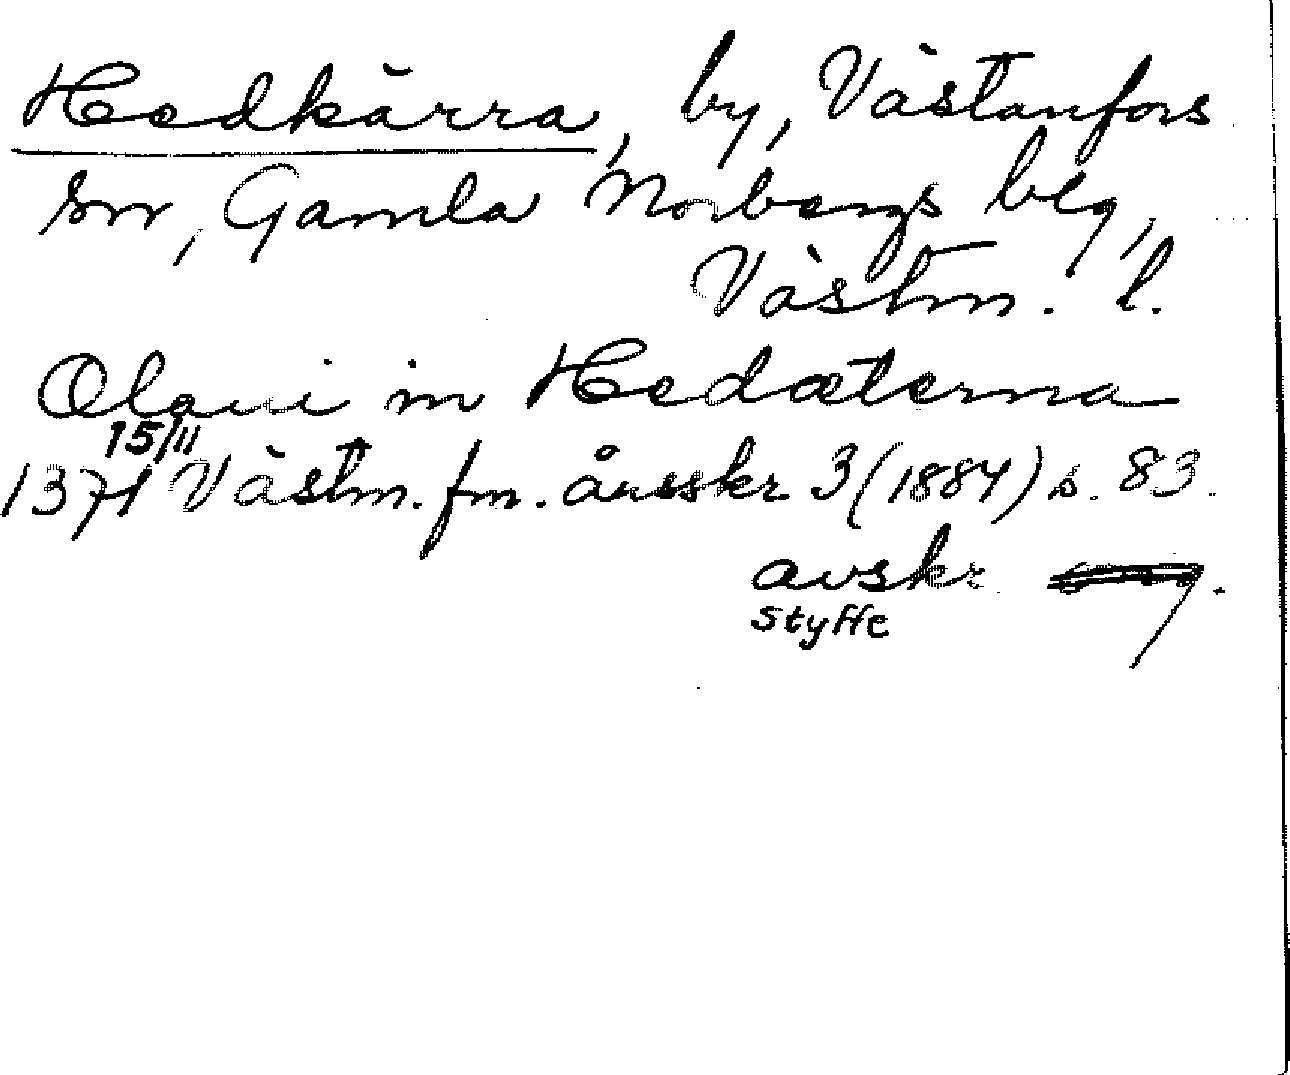 Hedkärra, by, Västanfors
sn, Gamla Norbergs blg,
Västm. l.
Olaui in Hedæterna
15/11
1371 Västm. fm. årsskr 3 (1884) s. 83.
avskr
Styffe